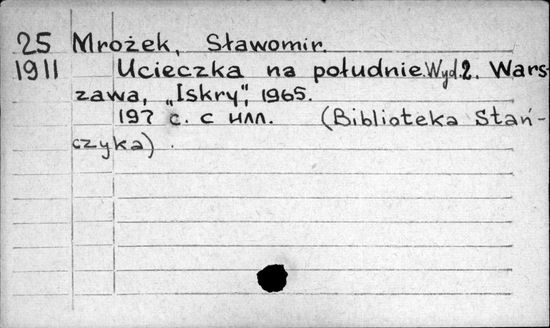 25 Mrożek, Sławomir.
1911 Ucieczka na południe. Wyd. 2. Wars-
zawa, „Iskry", 1965.
197 с. с илл. (Biblioteka Stań-
czyka).